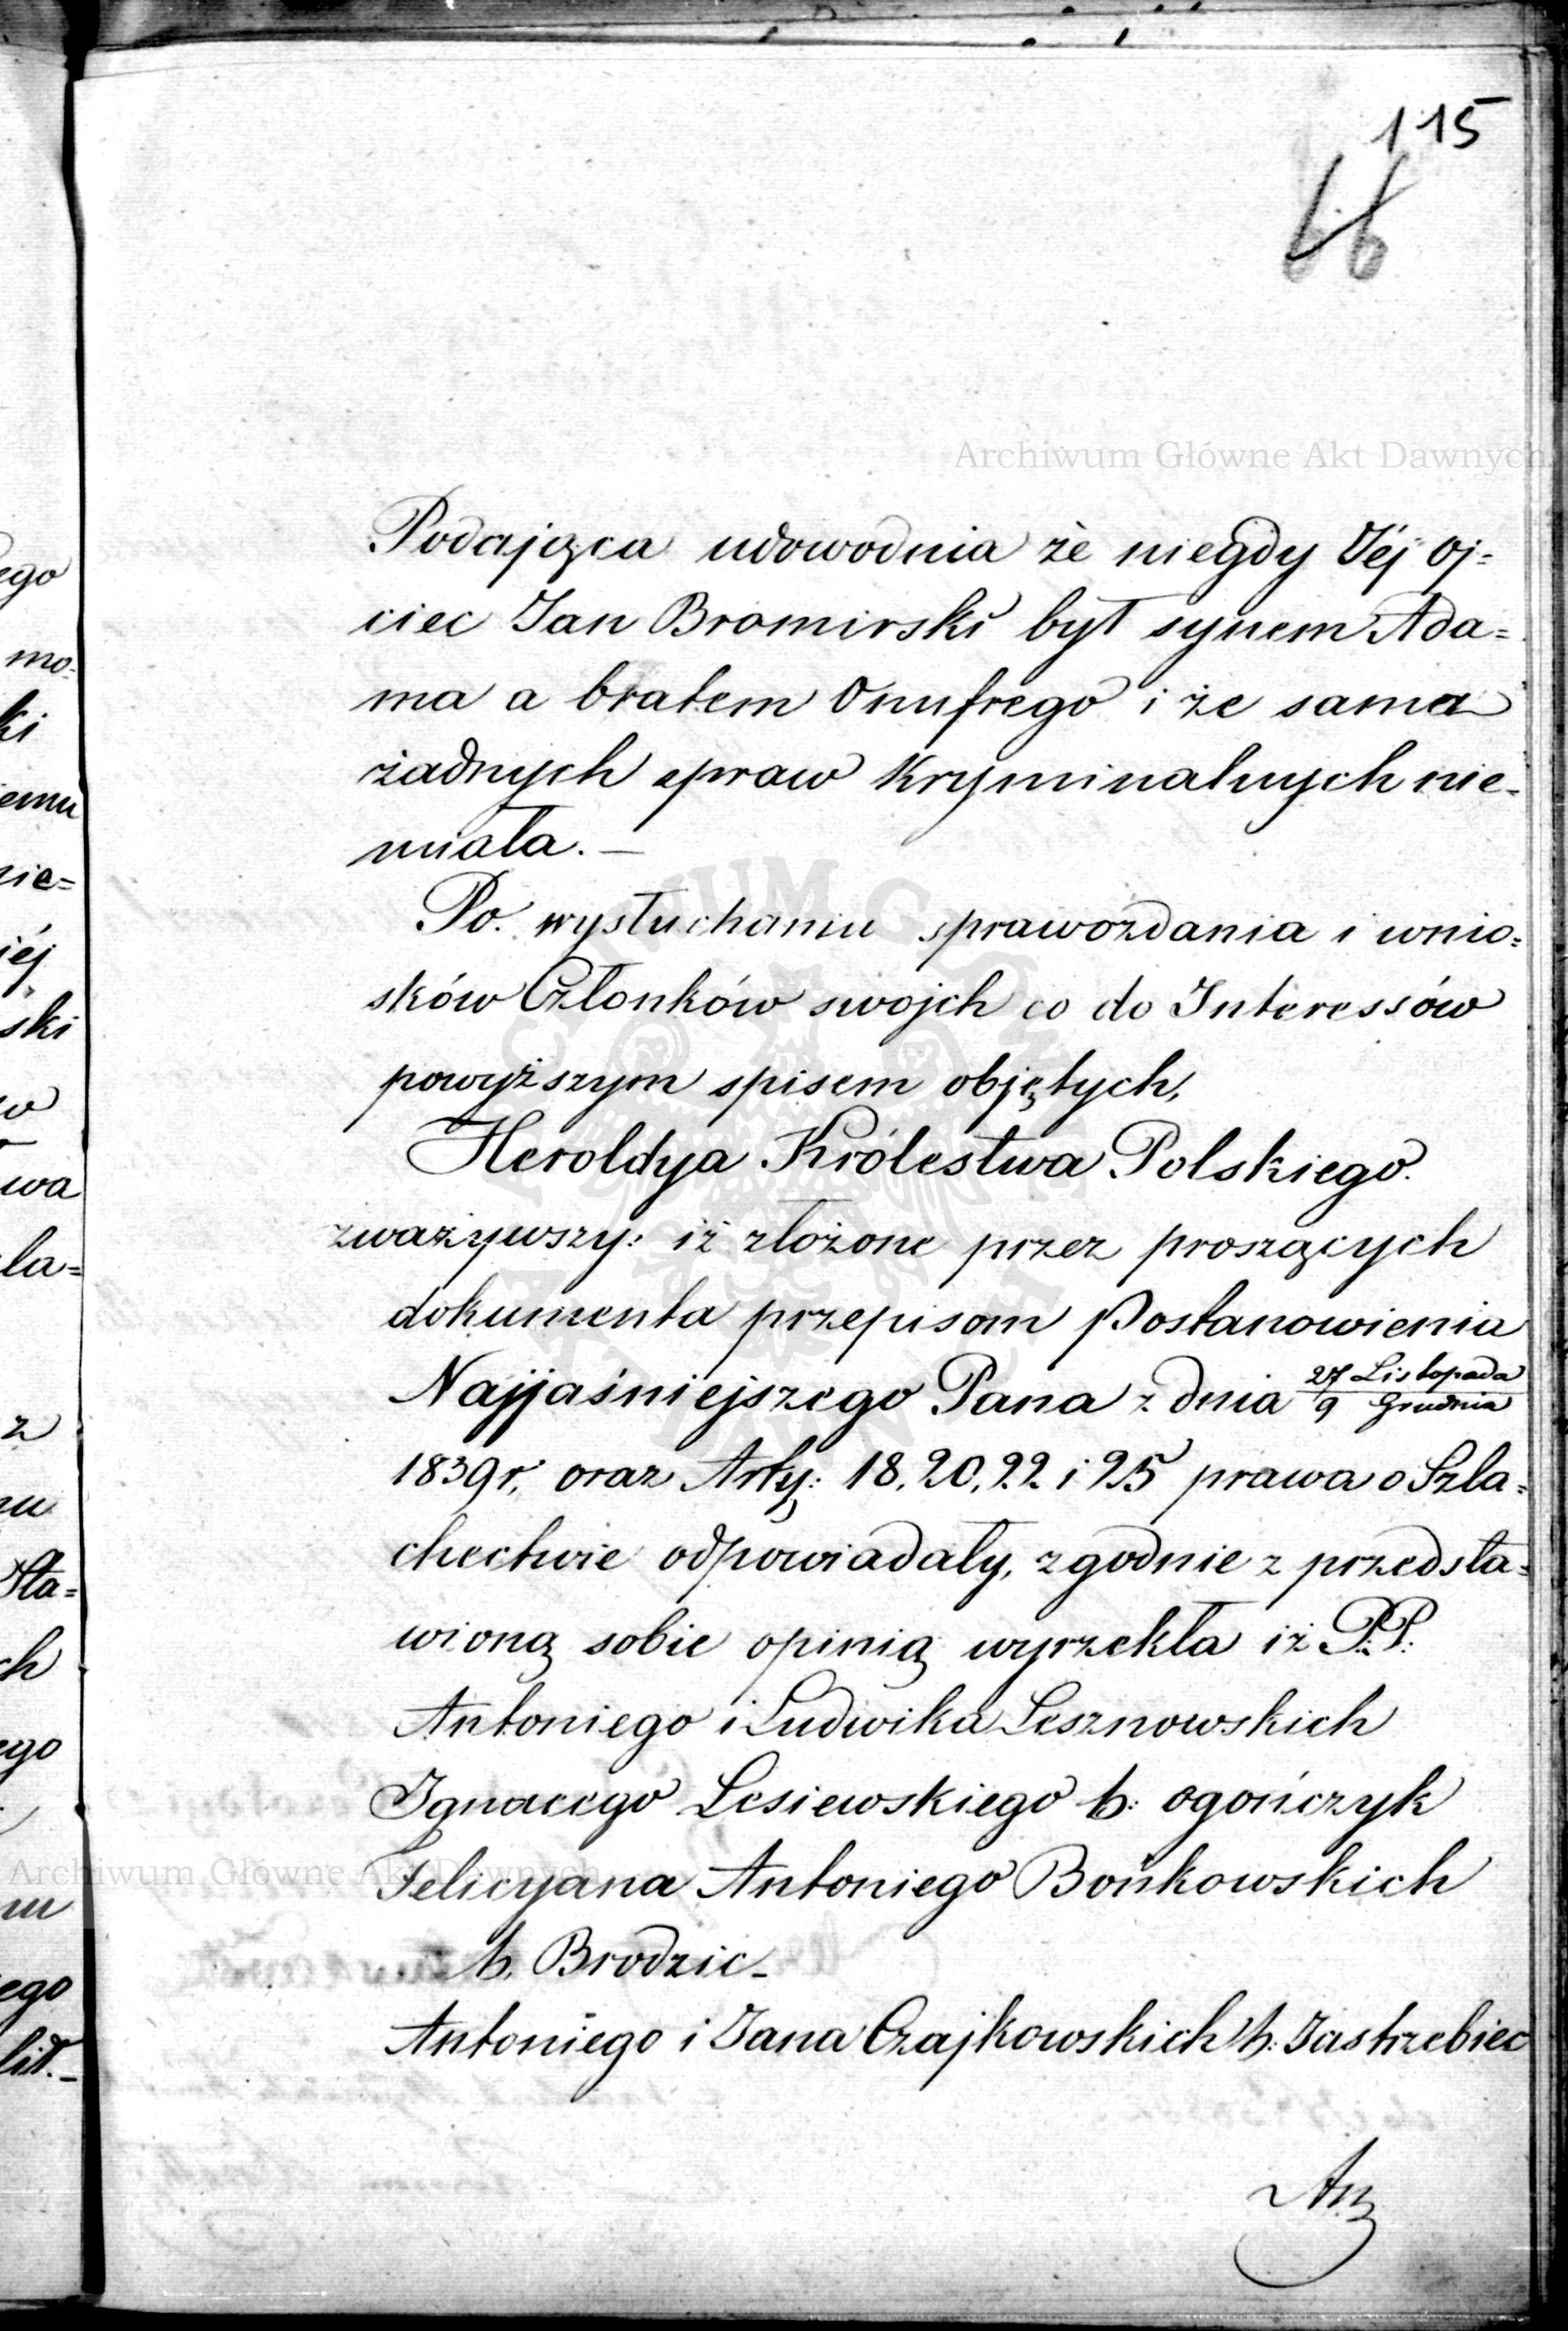 115
66
Archiwum Główne Akt Dawnych
Podająca udowodnia że niegdy Jéj oj=
ciec Jan Bromirski był synem Ada=
ma a bratem Onufrego i że sama
żadnych spraw Kryminalnych nie=
miała. —
Po wysłuchaniu sprawozdania i wnio=
sków Członków swojch co do Interessów
powyższym spisem objętych,
Heroldya Królestwa Polskiego.
zważywszy: iż złożone przez proszących
dokumenta przepisom Postanowienia
Najjaśniejszego Pana z dnia 27 Listopada
9 Grudnia
1839 r. oraz Arty: 18, 20, 22 i 25 prawa o Szla=
chectwie odpowiadały, zgodnie z przedsta=
wioną sobie opinią wyrzekła iż P.P.
Antoniego i Ludwika Lesznowskich
Ignacego Lesiewskiego h: ogończyk
Felicyana Antoniego Bońkowskich
Archiwum Główne Akt Dawnych
h. Brodzic_
Antoniego i Jana Czajkowskich h: Jastrzebiec
An
ego
mo=
ki
emu
nie=
iéj
ski
w
wa
la=
z
nu
Sta=
ch
ego
m
ego
lit._